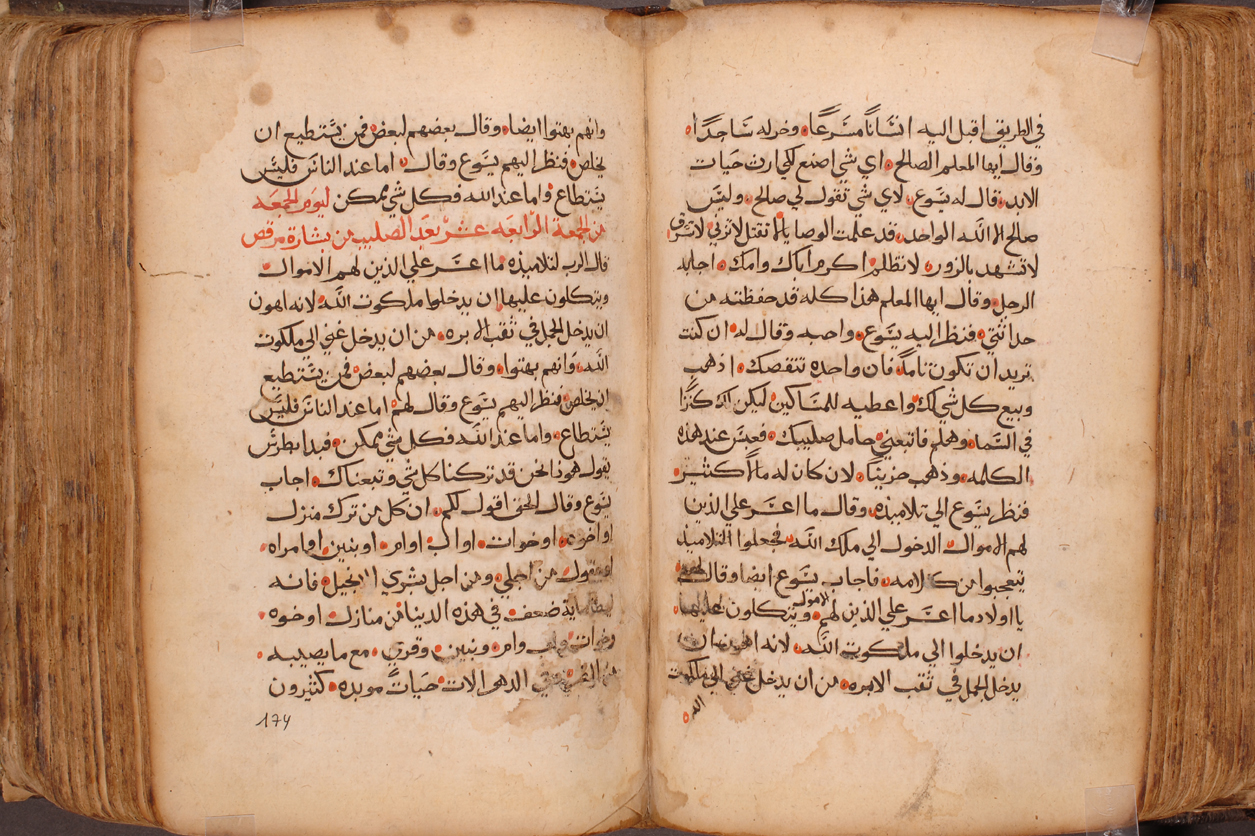 في الطريق اقبل اليه انسانًا مسرعًا وخر له ساجدًا
وقال ايها المعلم الصالح اي شي اصنع لكي ارث حيات
الابد قال له يسوع لاي شي تقول لي صالح وليس
صالح الا الله الواحد قد علمت الوصايا لا تقتل لا تزني لا تسرق
لا تشهد بالزور لا تظلم اكرم اباك وامك اجابه
الرجل وقال ايها المعلم هذا كله قد حفظته من
حداثتي فنظر اليه يسوع واحبه وقال له ان كنت
تريد ان تكون تاماً فان واحده تنقصك اذهب
وبيع كل شي لك واعطيه للمساكين ليكن لك كنزًا
في السما وهلم فاتبعني حامل صليبك فعبس عند هذه
الكلمه وذهب حزينًا لان كان له مالًا كثير
فنظر يسوع الي تلاميذه وقال ما اعسر علي الذين
لهم الاموال الدخول الي ملك الله فجعلوا التلاميذ
تيعجبوا من كلامه فاجاب يسوع ايضا وقال لهم
يا اولاد ما اعسر علي الذين لهم الاموال ويتكلون عليها
ان يدخلوا الي ملكوت الله لانه اهون ان
يدخل الجمل في ثقب الابره من ان يدخل غني الي ملكوت
الله
وانهم بهتوا ايضا وقال بعضهم لبعض فمن يستطيع ان
يخلص فنظر اليهم يسوع وقال اما عند الناس فليس
يستطاع واما عند الله فكل شي ممكن ليوم الجمعه
من الجمعة الرابعه عشر بعد الصليب من بشارة مرقص
قال الرب لتلاميذه ما اعسر علي الذين لهم الاموال
ويتكلون عليها ان يدخلوا ملكوت الله لانه اهون
ان يدخل الجمل في ثقب الابره من ان يدخل غني الي ملكوت
الله وانهم بهتوا وقال بعضهم لبعض فمن يستطيع
ان يخلص فنظر اليهم يسوع وقال لهم اما عند الناس فليس
يستطاع واما عند الله فكل شي ممكن فبدا بطرس
يقول هوذا نحن قد تركنا كل شي وتبعناك اجاب
يسوع وقال الحق اقول لكم ان كل من ترك منزل
او اخوه او خوات او اب او ام او بنين او امراه
او حقول من اجلي ومن اجل بشري الانجيل فانه
مايه ضعف في هذه الدنيا من منازل او خوه
وخوات واب وام وبنين وقري مع ما يصيبه
من في الدهر الات حيات موبده كثيرون
174